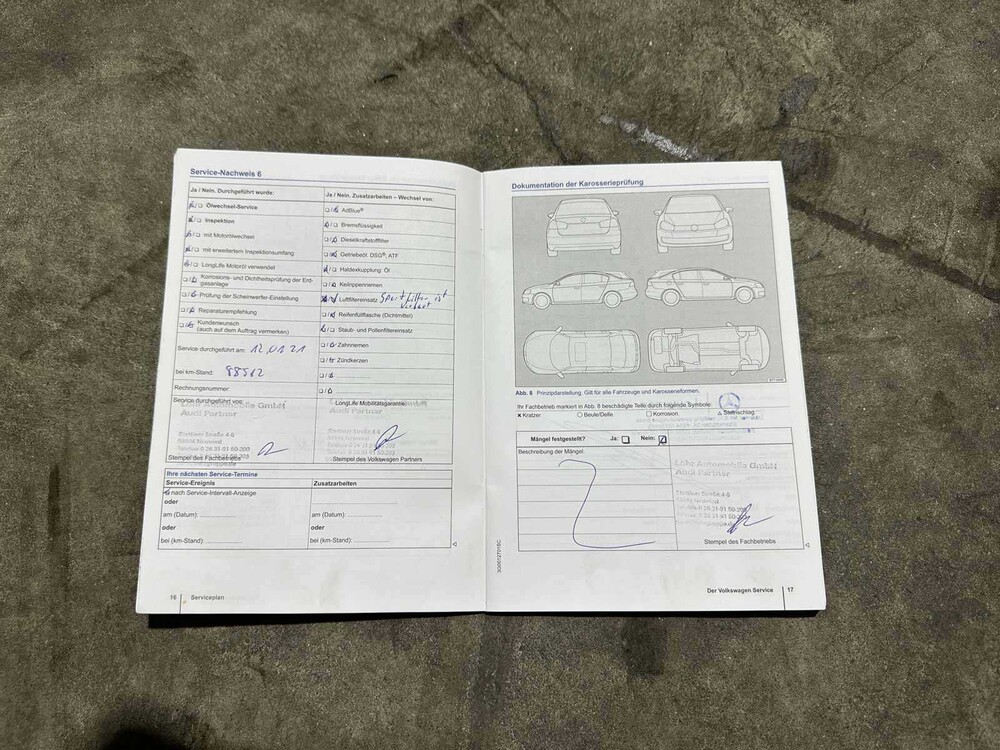 Service-Nachweis 6
Ja / Nein. Durchgeführt wurde:
Ölwechsel-Service
Inspektion
mit Motorölwechsel
mit erweitertem Inspektionsumfang
LongLife Motoröl verwendet
Korrosions- und Dichtheitsprüfung der Erdgasanlage
Prüfung der Scheinwerfer-Einstellung
Reparaturempfehlung
Kundenwunsch
(auch auf dem Auftrag vermerken)
Service durchgeführt am: 12.01.21
bei km-Stand: 88512
Rechnungsnummer:
Service durchgeführt von:
Löhr Automobile GmbH
Audi Partner
Stettiner Straße 4-6
Neuwied
Stempel des Fachbetriebs
Ja / Nein. Zusatzarbeiten – Wechsel von:
AdBlue®
Bremsflüssigkeit
Dieselkraftstofffilter
Getriebeöl: DSG®; ATF
Haldexkupplung: Öl
Keilrippenriemen
Luftfiltereinsatz Sportfilter ist verbaut
Reifenfüllflasche (Dichtmittel)
Staub- und Pollenfiltereinsatz
Zahnriemen
Zündkerzen
LongLife Mobilitätsgarantie:
Audi Partner
Stettiner Straße 4-6
Stempel des Volkswagen Partners
Ihre nächsten Service-Termine
Service-Ereignis
nach Service-Intervall-Anzeige
oder
am (Datum):
oder
bei (km-Stand):
Zusatzarbeiten
am (Datum):
oder
bei (km-Stand):
16 Serviceplan
Dokumentation der Karosserieprüfung
Abb. 8 Prinzipdarstellung. Gilt für alle Fahrzeuge und Karosserieformen.
Ihr Fachbetrieb markiert in Abb. 8 beschädigte Teile durch folgende Symbole:
× Kratzer ○ Beule/Delle □ Korrosion △ Steinschlag
Mängel festgestellt? Ja: Nein:
Beschreibung der Mängel:
Löhr Automobile GmbH
Audi Partner
Stettiner Straße 4-6
Neuwied
Stempel des Fachbetriebs
3G0012701SC
Der Volkswagen Service 17